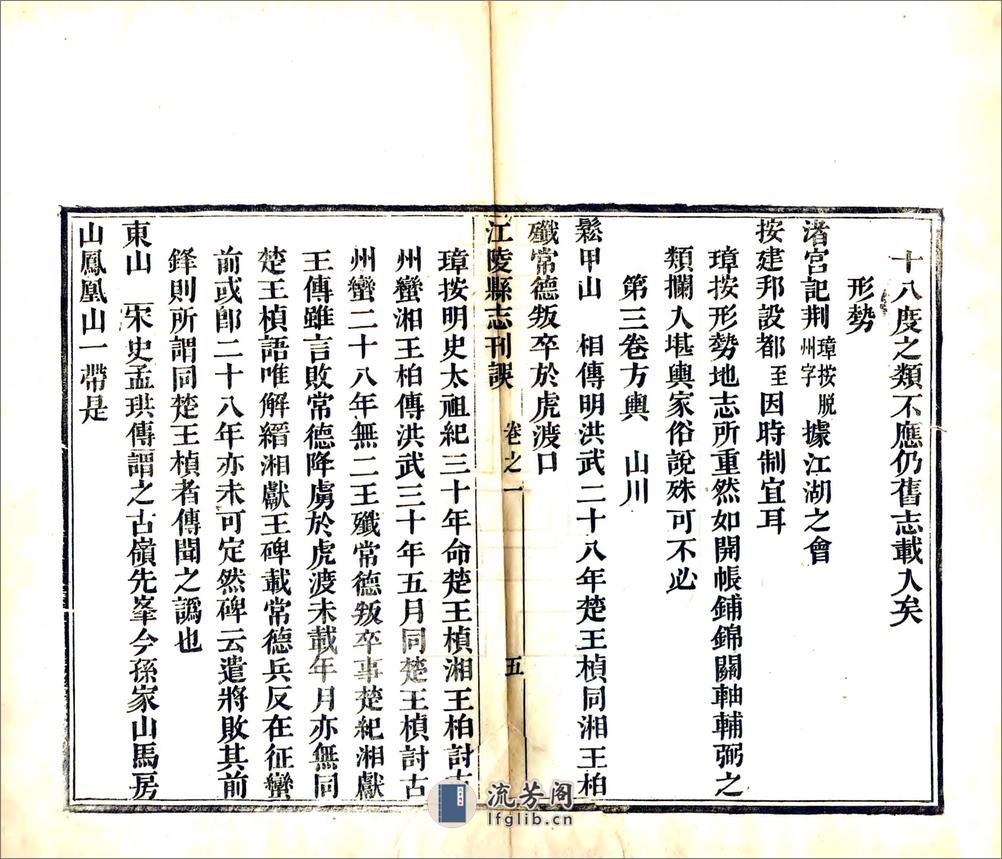 十八度之類不應仍舊志載入矣
形勢
渚宮記荆璋按脫州字據江湖之會
按建邦設都至因時制宜耳
璋按形勢地志所重然如開帳鋪錦關軸輔弼之
類攔入堪輿家俗說殊可不必
第三卷方輿 山川
鬆甲山 相傳明洪武二十八年楚王楨同湘王柏
殲常德叛卒於虎渡口
江陵縣志刊誤 卷之一 五
璋按明史太祖紀三十年命楚王楨湘王柏討古
州蠻湘王柏傳洪武三十年五月同楚王楨討古
州蠻二十八年無二王殲常德叛卒事楚紀湘獻
王傳雖言敗常德降虜於虎渡未載年月亦無同
楚王楨語唯解縉湘獻王碑載常德兵反在征蠻
前或卽二十八年亦未可定然碑云遣將敗其前
鋒則所謂同楚王楨者傳聞之譌也
東山 宋史孟珙傳謂之古嶺先峯今孫家山馬房
山鳳凰山一帶是
流芳阁
lfglib.cn